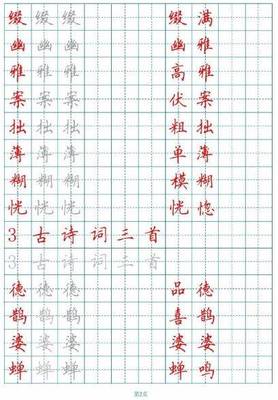 缀缀缀 缀满
幽幽幽 幽雅
雅雅雅 高雅
案案案 伏案
拙拙拙 粗拙
薄薄薄 单薄
糊糊糊 模糊
恍恍恍 恍惚
3古诗词三首
3古诗词三首
德德德 品德
鹊鹊鹊 喜鹊
婆婆婆 婆婆
蝉蝉蝉 蝉鸣
第2页